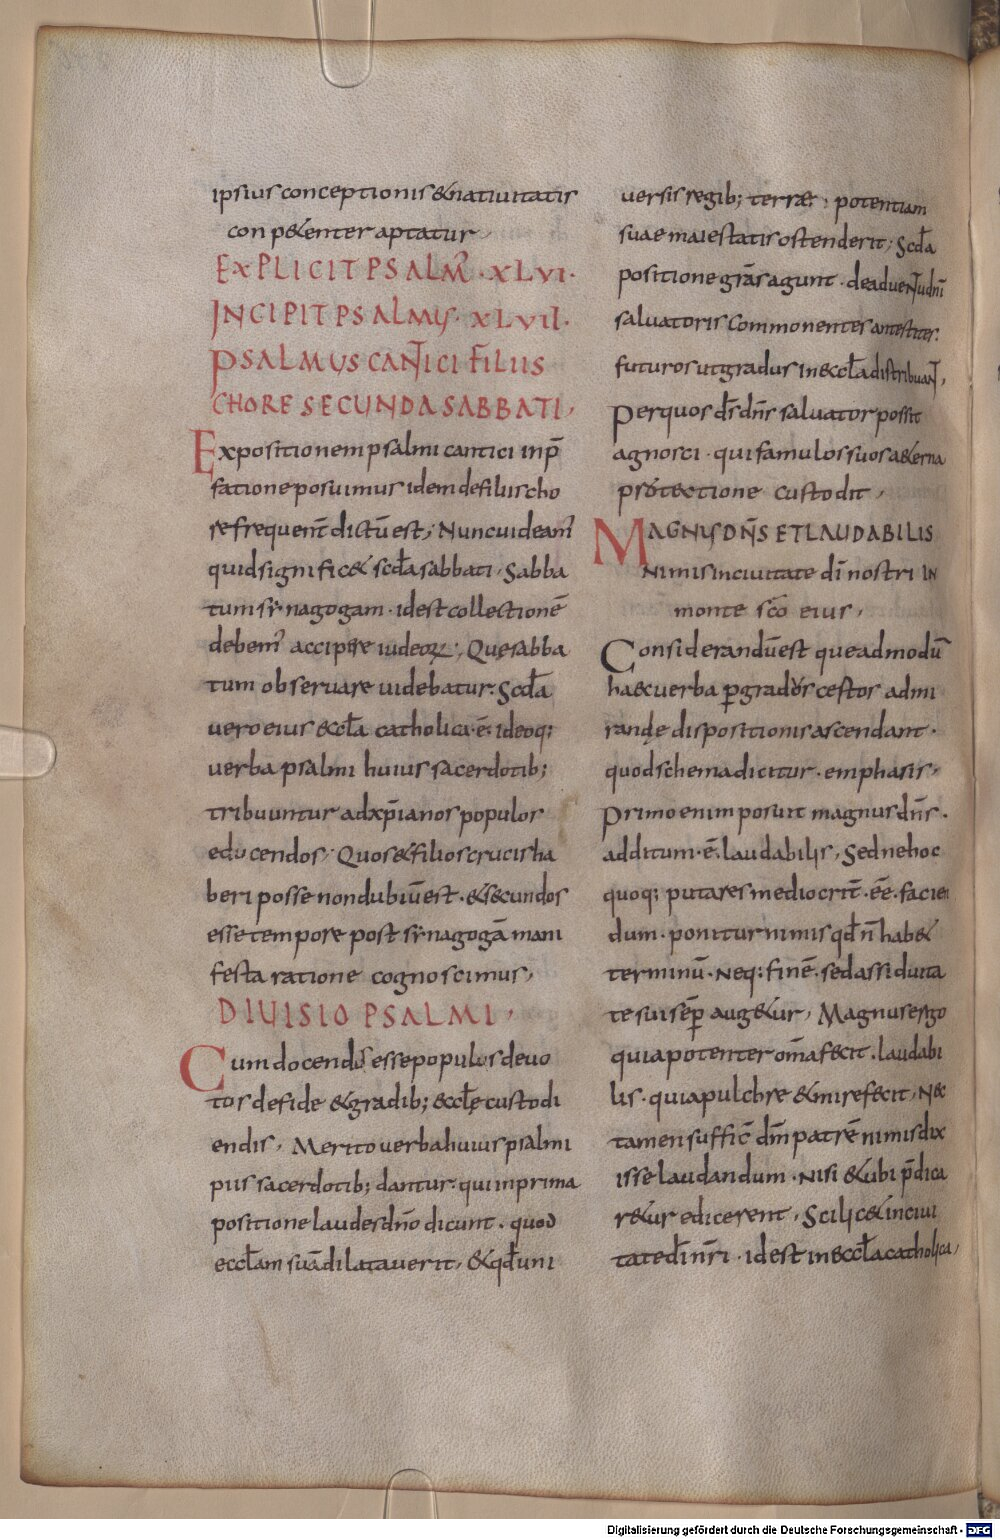 ipsius conceptionis & natiuitatis
conp&enter aptatur
EXPLICIT PSALM̅ · XLVI ·
INCIPIT PSALMUS · XLVII ·
PSALMUS CANTICI FILIIS
CHORE SECUNDA SABBATI,
Expositionem psalmi cantici in p̄
fatione posuimus idem de filiis cho
re frequent̄ dictū est; Nunc uideam̄
quid signific& scd̄a sabbati, Sabba
tum synagogam · id est collectionē
debem̄ accipere iudeoꝝ; Quę sabba
tum obseruare uidebatur; Scd̄a
uero eius &ccl̄a catholica · ē · ideoq;
uerba psalmi huius sacerdotib;
tribuuntur ad xp̄ianos populos
educendos; Quos & filios crucis ha
beri posse non dubiū est · & secundos
esse tempore post synagogā mani
festa ratione cognoscimus,
DIUISIO PSALMI,
Cum docendos esse populos deuo
tos de fide & gradib; eccl̄ę custodi
endis, Merito uerba huius psalmi
piis sacerdotib; dantur · qui in prima
positione laudes dn̄o dicunt · quod
eccl̄am suā dilatauerit, & qd̄ uni
uersis regib; terrae · potentiam
suae maiestatis ostenderit; Scd̄a
positione grās agunt · de aduentu dn̄i
saluatoris commonentes antestites
futuros ut gradus in &ccl̄a distribuant,
Per quos dr̄ dn̄s saluator possit
agnosci · qui famulos suos a&erna
protectione custodit,
MAGNUS DN̄S ET LAUDABILIS
Nimis in ciuitate dī nostri in
monte sc̄o eius,
Considerandū est queadmodū
haec uerba p̱ gradus cestos admi
randę dispositionis ascendant ·
quod schema dicitur · emphasis,
Primo enim posuit magnus dn̄s ·
additum · ē · laudabilis, Sed ne hoc
quoq; putares mediocrit̄ · eē · facien
dum · ponitur nimis qd̄ n̄ hab&
terminū · Neq; finē · sed assiduita
te sui sēp aug&ur, Magnus ergo
quia potenter om̄a fecit · laudabi
lis · quia pulchre & mire fecit, Nec
tamen suffic̄ dm̄ patrē nimis dix
isse laudandum · Nisi & ubi p̄dica
r&ur edicerent, Scilic& in ciui
tate dī nr̄i · id est in &ccl̄a catholica,